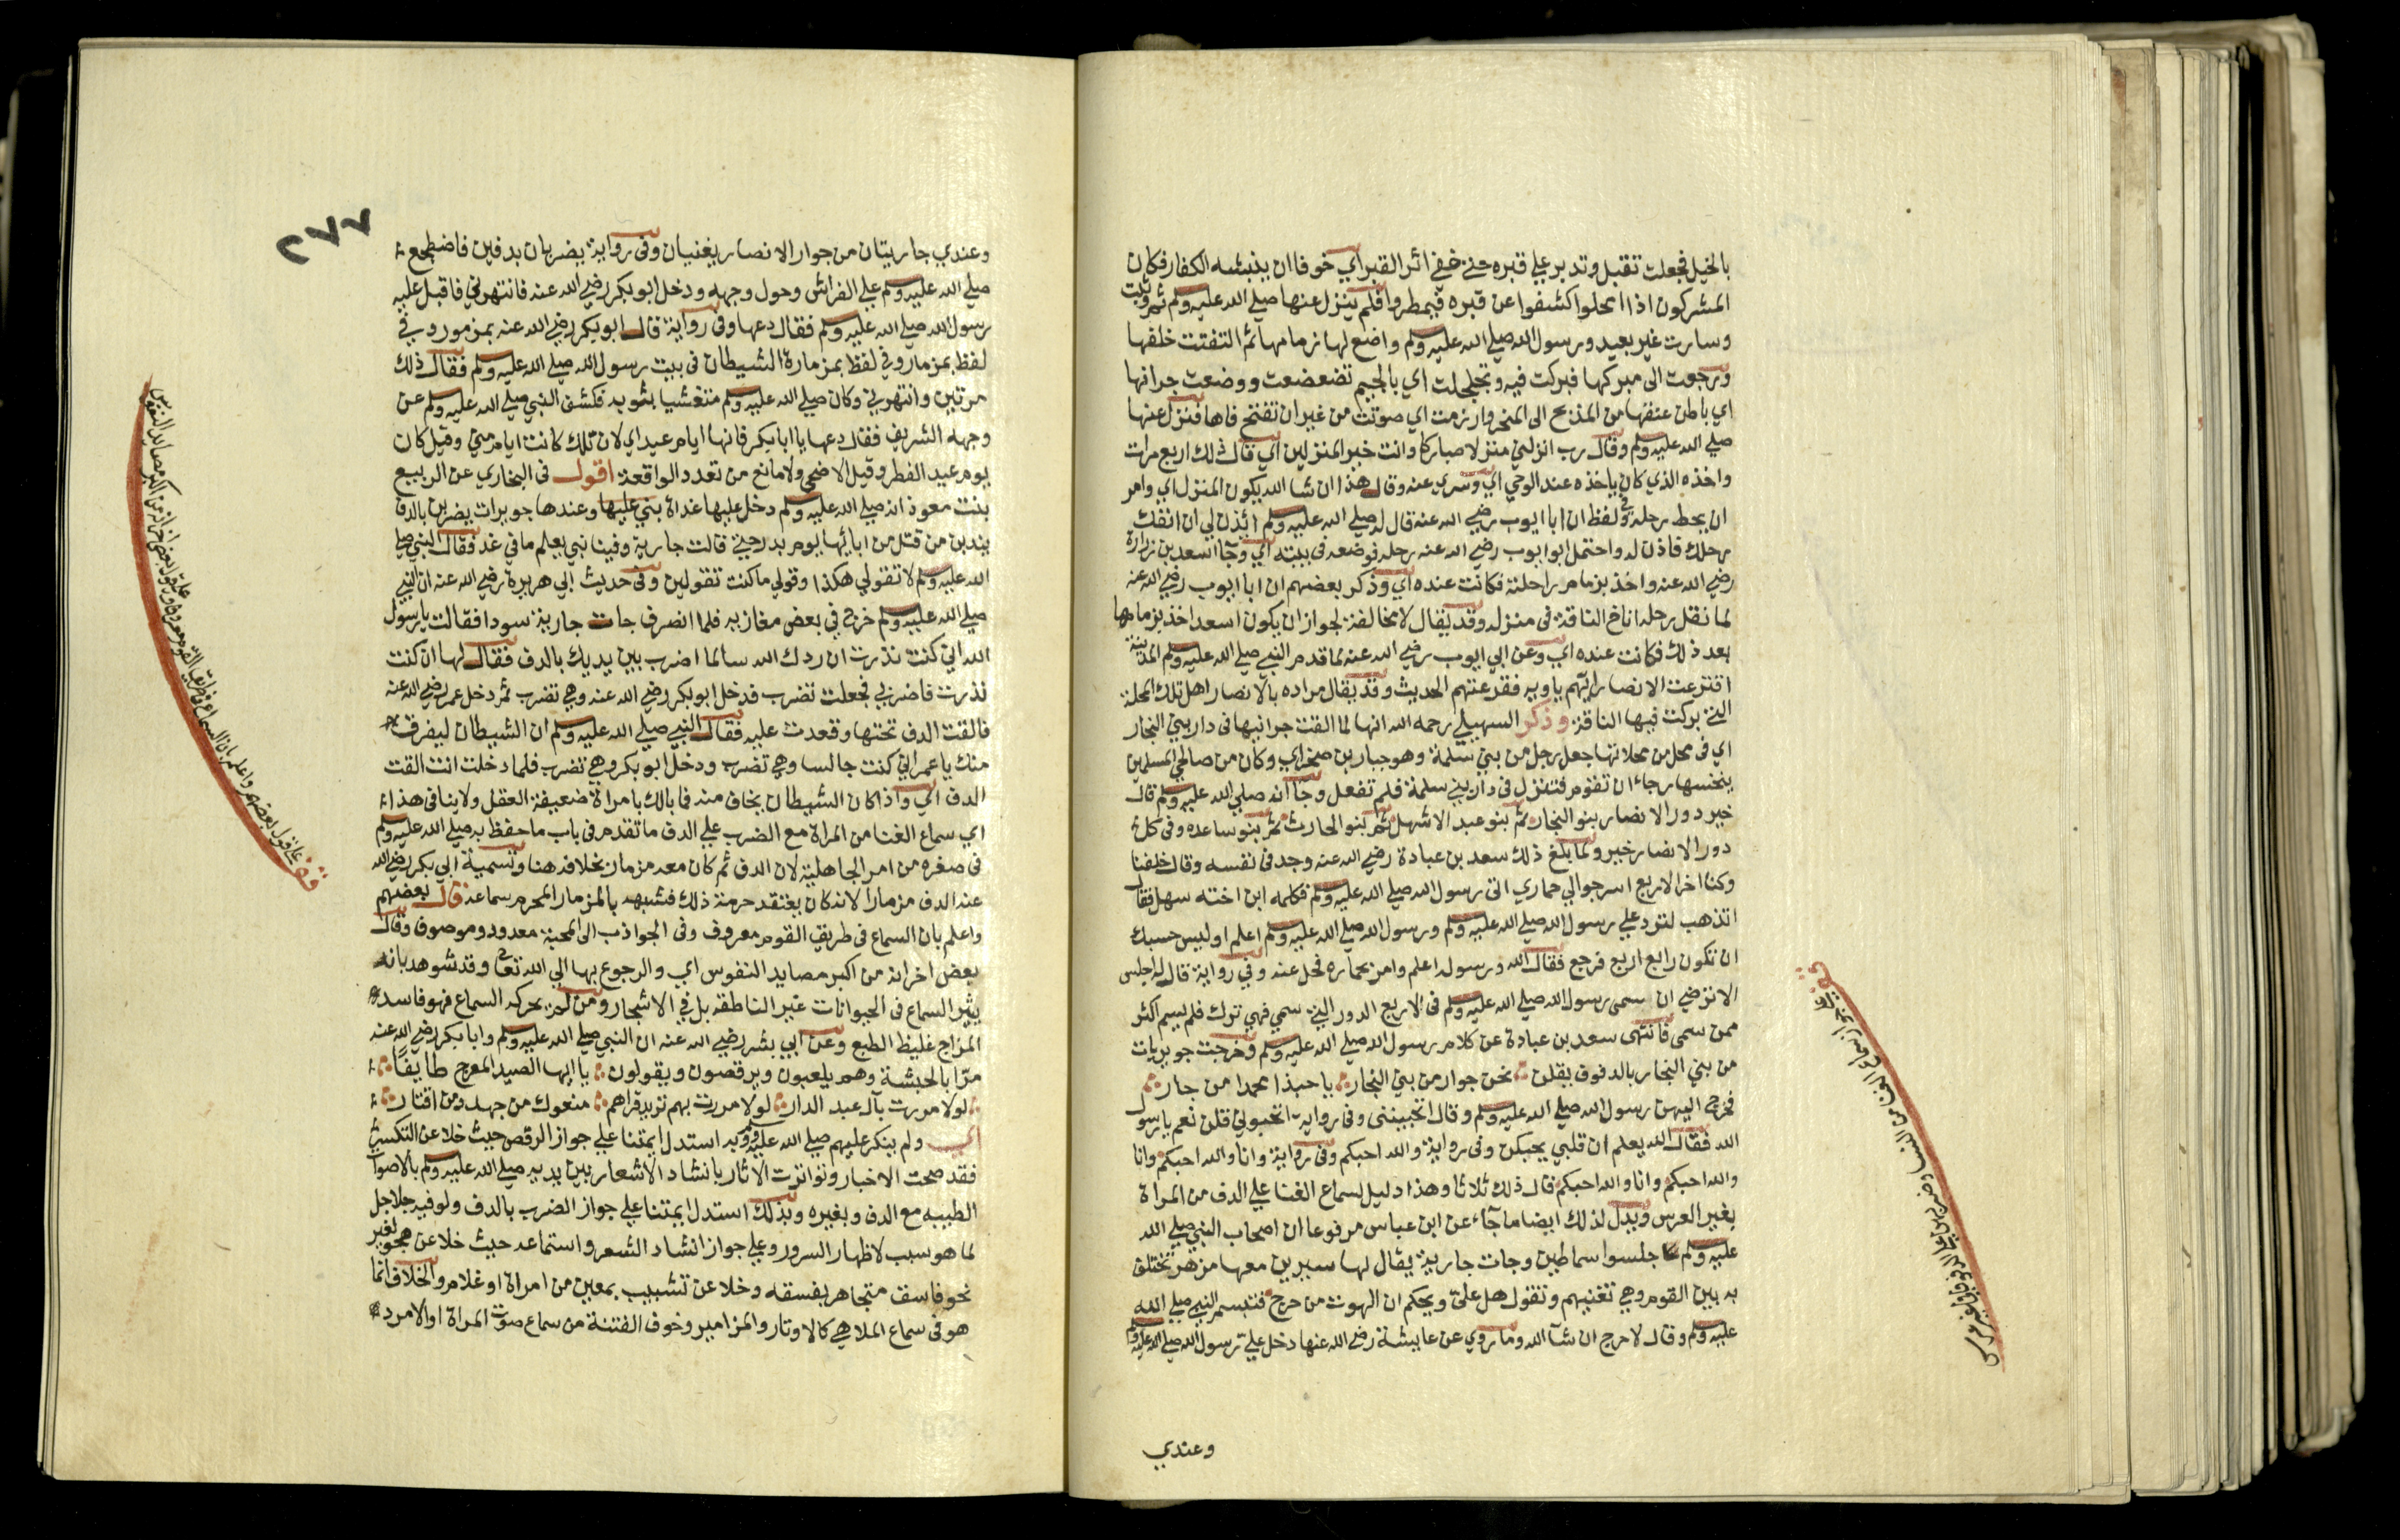 بالخيل فجعلت تقبل وتدبر علي قبره حتي خفي اثر القبر اي خوفا ان ينبشه الكفار فكان
المشركون اذا امحلوا كشفوا عن قبره فيمطروا فلم ينزل عنها صلي الله عليه وسلم ثم وثبت
وسارت غير بعيد ورسول الله صلي الله عليه وسلم واضع لها زمامها ثم التفتت خلفها
ورجعت الى مبركها فبركت فيه وتجلجلت اي بالجيم تضعضعت ووضعت جرانها
اي باطن عنقها من المذبح الى المنحر وارزمت اي صوتت من غير ان تفتح فاها فنزل عنها
صلي الله عليه وسلم وقال رب انزلني منزلا مباركا وانت خير المنزلين اي قال ذلك اربع مرات
واخذه الذي كان ياخذه عند الوحي اي وسري عنه وقال هذا ان شا الله يكون المنزل اي وامر
ان يحط رحله وفي لفظ ان ابا ايوب رضي الله عنه قال له صلي الله عليه وسلم ائذن لي ان انقل
رحلك فاذن له واحتمل ابو ايوب رضي الله عنه رحله فوضعه في بيته اي وجآ اسعد بن زرارة
رضي الله عنه واخذ بزمام راحلته فكانت عنده اي وذكر بعضهم ان ابا ايوب رضي الله عنه
لما نقل رحله اناخ الناقة في منزله وقد يقال لا مخالفة لجواز ان يكون اسعد اخذ بزمامها
بعد ذلك فكانت عنده اي وعن ابي ايوب رضي الله عنه لما قدم النبي صلي الله عليه وسلم المدينة
اقترعت الانصار ايهم ياويه فقرعتهم الحديث وقد يقال مراده بالانصار اهل تلك المحلة
التي بركت فيها الناقة وذكر السهيلي رحمه الله انها لما القت جرانها في دار بني النجار
اي في محل من محلاتها جعل رجل من بني سلمة وهو جبار بن صخر اي وكان من صالحي المسلمين
ينخسها رجاء ان تقوم فتنزل في دار بني سلمة فلم تفعل وجآ انه صلي الله عليه وسلم قال
خير دور الانصار بنو النجار ثم بنو عبد الاشهل ثم بنو الحارث ثم بنو ساعده وفي كل
دور الانصار خير ولما بلغ ذلك سعد بن عبادة رضي الله عنه وجد في نفسه وقال خلفنا
وكنا اخر الاربع اسرجوا لي حماري اتى رسول الله صلي الله عليه وسلم فكلمه ابن اخته سهل فقال
اتذهب لترد علي رسول الله صلي الله عليه وسلم ورسول الله صلي الله عليه وسلم اعلم اوليس حسبك
ان تكون رابع اربع فرجع فقال الله ورسوله اعلم وامر بحماره فحل عنه وفي رواية قال له اجلس
الا ترضي ان سمى رسول الله صلي الله عليه وسلم في الاربع الدور التي سمي فهي ترك فلم يسم اكثر
ممن سمى فانتهى سعد بن عبادة عن كلام رسول الله صلي الله عليه وسلم وخرجت جويريات
من بني النجار بالدفوف يقلن نحن جوار من بني النجار يا حبذا محمدا من جار
فخرج اليهن رسول الله صلي الله عليه وسلم وقال اتحببنني وفي رواية اتحبوني قلن نعم يا رسول
الله فقال الله يعلم ان قلبي يحبكن وفي رواية والله احبكم وفي رواية وانا والله احبكم وانا
والله احبكم وانا والله احبكم قال ذلك ثلاثا وهذا دليل لسماع الغنا علي الدف من المراة
بغير العرس ويدل لذلك ايضا ما جآء عن ابن عباس مرفوعا ان اصحاب النبي صلي الله
عليه وسلم جلسوا سماطين وجات جارية يقال لها سيرين معها مزهر تختلف
به بين القوم وهي تغنيهم وتقول هل علي ويحكم ان لهوت من حرج فتبسم النبي صلي الله
عليه وسلم وقال لا حرج ان شآ الله وما روي عن عايشة رضي الله عنها دخل علي رسول الله صلي الله عليه وسلم
وعندي
قف علي جواز سماع الغنا من النسا وضربهن علي الدفوف في غير عرس
٢٧٧
وعندي جاريتان من جوار الانصار يغنيان وفي رواية يضربان بدفين فاضطجع
صلي الله عليه وسلم علي الفراش وحول وجهه ودخل ابو بكر رضي الله عنه فانتهرني فاقبل عليه
رسول الله صلي الله عليه وسلم فقال دعها وفي رواية قال ابو بكر رضي الله عنه بمزمور وفي
لفظ بمزمار وفي لفظ بمزمارة الشيطان في بيت رسول الله صلي الله عليه وسلم فقال ذلك
مرتين وانتهرني وكان صلي الله عليه وسلم متغشيا بثوبه فكشف النبي صلي الله عليه وسلم عن
وجهه الشريف فقال دعها يا ابا بكر فانها ايام عيد اي لان تلك كانت ايام مني وقيل كان
يوم عيد الفطر وقيل الاضحى ولا مانع من تعدد الواقعة اقول في البخاري عن الربيع
بنت معوذ انه صلي الله عليه وسلم دخل عليها غداة بني عليها وعندها جويرات يضربن بالدف
يندبن من قتل من ابائها يوم بدر حتي قالت جارية وفينا نبي يعلم ما في غد فقال النبي صلي
الله عليه وسلم لا تقولي هكذا وقولي ما كنت تقولين وفي حديث ابي هريرة رضي الله عنه ان النبي
صلي الله عليه وسلم خرج في بعض مغازيه فلما انصرف جات جارية سودا فقالت يا رسول
الله اني كنت نذرت ان ردك الله سالما اضرب بين يديك بالدف فقال لها ان كنت
نذرت فاضربي فجعلت تضرب فدخل ابو بكر رضي الله عنه وهي تضرب ثم دخل عمر رضي الله عنه
فالقت الدف تحتها وقعدت عليه فقال النبي صلي الله عليه وسلم ان الشيطان ليفرق
منك يا عمر اني كنت جالسا وهي تضرب ودخل ابو بكر وهي تضرب فلما دخلت انت القت
الدف اي واذا كان الشيطان يخاف منه فما بالك بامراة ضعيفة العقل ولا ينافي هذا
اي سماع الغنا من المراة مع الضرب علي الدف ما تقدم في باب ما حفظ به صلي الله عليه وسلم
في صغره من امر الجاهلية لان الدف ثم كان معه مزمار بخلافه هنا وتسمية ابي بكر رضي الله
عنه الدف مزمارا لانه كان يعتقد حرمة ذلك فشبهه بالمزمار المحرم سماعه قال بعضهم
واعلم بان السماع في طريق القوم معروف وفي الجواذب الى المحبة معدود وموصوف وقال
بعض اخر انه من اكبر مصايد النفوس اي والرجوع بها الي الله تعالي وقد شوهد بانه
يثير السماع في الحيوانات غير الناطقة بل في الاشجار ومن لم يحركه السماع فهو فاسد
المزاج غليظ الطبع وعن ابي بشر رضي الله عنه ان النبي صلي الله عليه وسلم وابا بكر رضي الله عنه
مرّا بالحبشة وهم يلعبون ويرقصون ويقولون يا ايها الضيف المعرج طايفًا
لولا مررت بآل عبد الدار لولا مررت بهم تريد قراهم منعوك من جهد ومن اقتار
اي ولم ينكر عليهم صلي الله عليه وسلم وبه استدل ايمتنا علي جواز الرقص حيث خلا عن التكسر
فقد صحت الاخبار وتواترت الاثار بانشاد الاشعار بين يديه صلي الله عليه وسلم بالاصوات
الطيبه مع الدف وبغيره وبذلك استدل ايمتنا علي جواز الضرب بالدف ولو فيه جلاجل
لما هو سبب لاظهار السرور وعلي جواز انشاد الشعر واستماعه حيث خلا عن هجو لغير
نحو فاسق متجاهر بفسقه وخلا عن تشبيب بمعين من امراة او غلام والخلاف انما
هو في سماع الملاهي كالاوتار والمزامير وخوف الفتنة من سماع صوت المراة او الامرد
قف علي قول بعضهم واعلم بان السماع في طريق القوم معروف